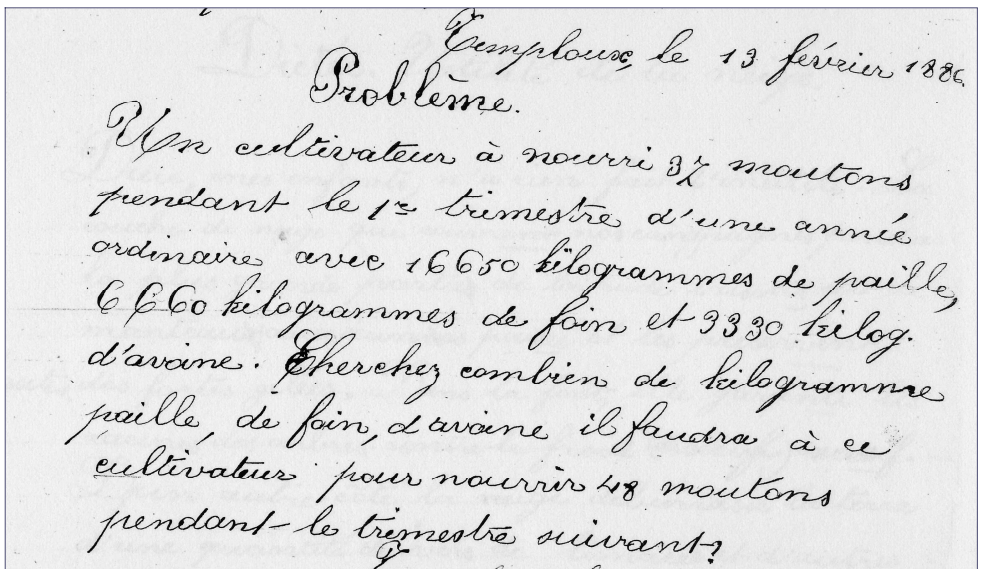 Temploux, le 13 février 1886.
Problème.
Un cultivateur à nourri 37 moutons
pendant le 1er trimestre d'une année
ordinaire avec 16650 kilogrammes de paille,
6660 kilogrammes de foin et 3330 kilog.
d'avoine. Cherchez combien de kilogramme
paille, de foin, d'avoine il faudra à ce
cultivateur pour nourrir 48 moutons
pendant le trimestre suivant?